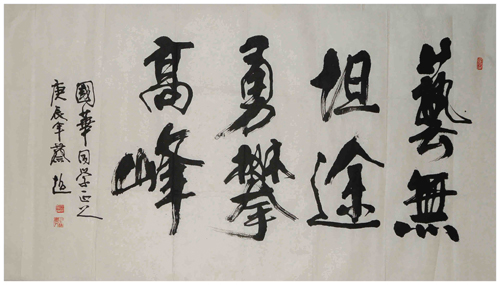 藝無
坦途
勇攀
高峰
國華同学正之
庚辰年蔡